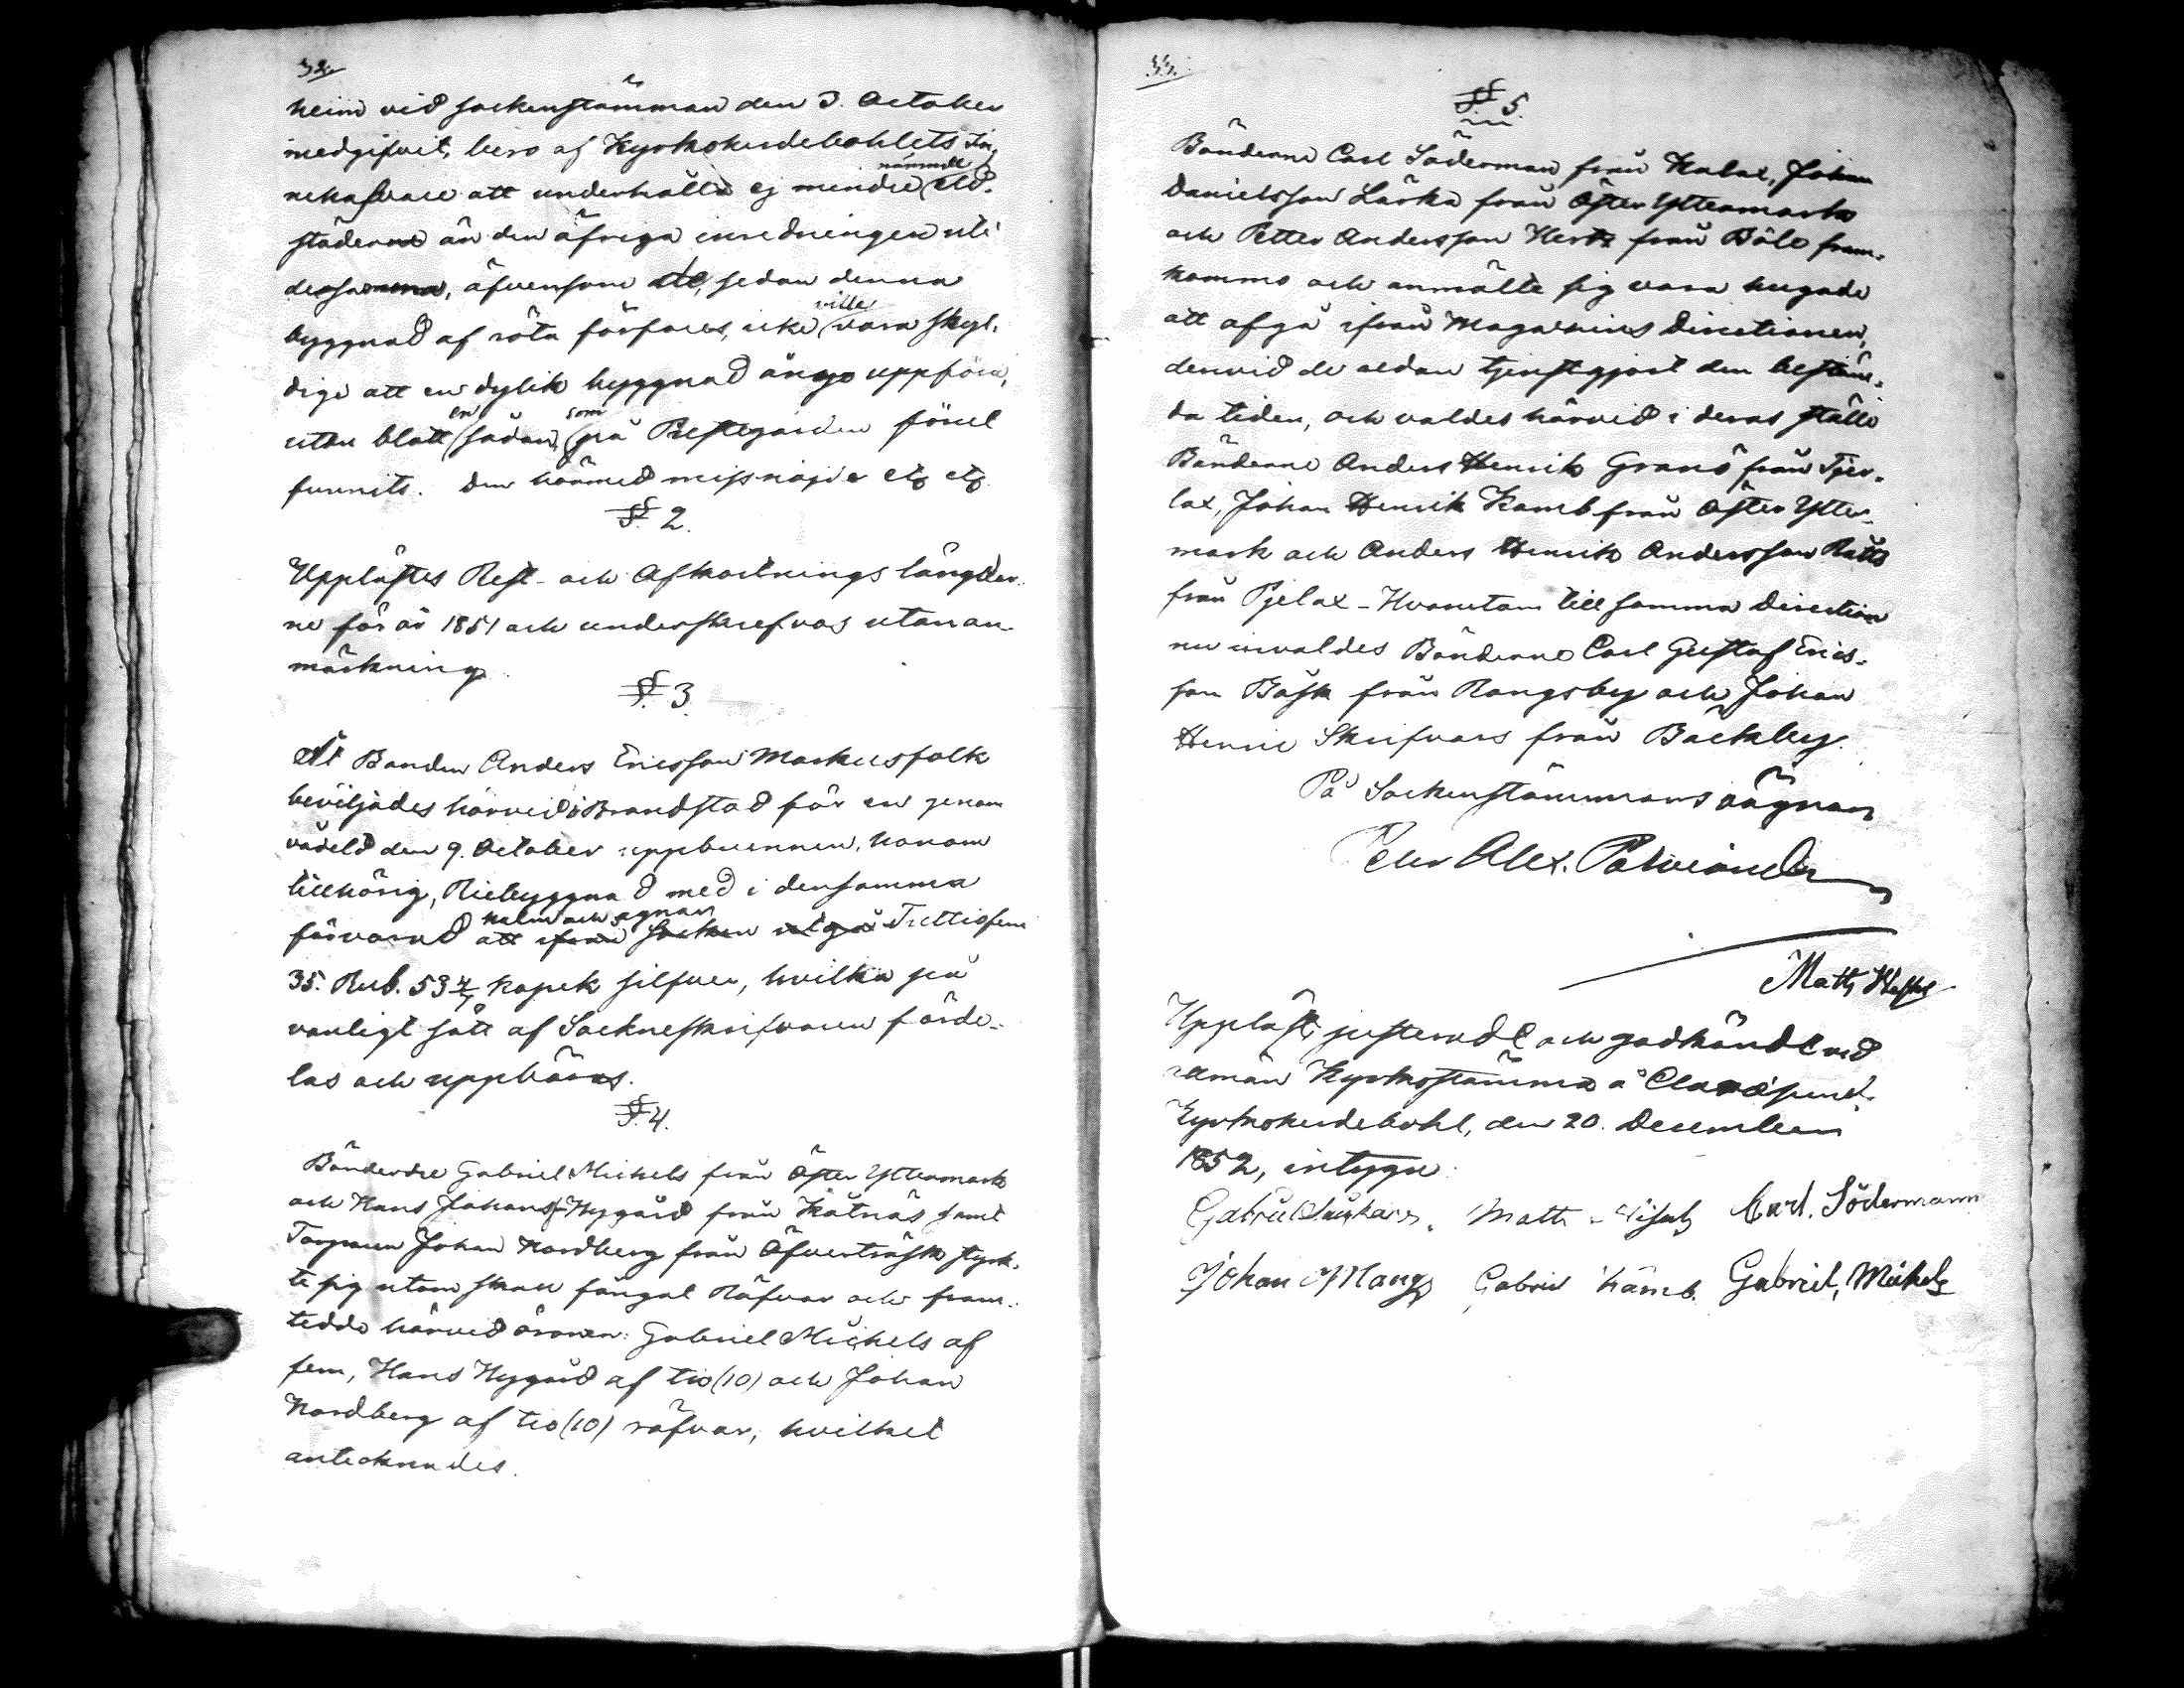 32.
heim vid sockenstämman den 3. October
medgifvit, bero af Kyrkoherdebohlets In-
nehafvare att underhålla ej mindre nämnde eld-
städerne än den öfriga inredningen uti
densamma, äfvensom de, sedan denna
byggnad af röta förfares, icke ville vara skyl-
dige att en dylik byggnad ånyo uppföra,
utan blott en sådan, som på Prestegården förut
funnits. Den härmed missnöjde etc etc
§ 2.
Upplästes Rest- och Afkortnings längder-
ne för år 1851 och underskrefvos utan an-
märkning.
§ 3.
Åt Bonden Anders Ericsson Markusfolk
beviljades härvid i Brandstod för en genom
vådeld den 9. October uppbrunnen, honom
tillhörig, Riebyggnad med i densamma
förvarad halm och agnar att ifrån Socken utgå Trettiofem
35. Rub. 53 4/7 kopek silfver, hvilka på
vanligt sätt af Sockneskrifvaren förde-
las och uppbäras.
§ 4.
Bönderne Gabriel Michels från Öster Yttermark
och Hans Johanss. Nygård från Kåtnäs samt
Torparen Johan Nordberg från Öfverträsk styrk-
te sig utom skall fångat Räfvar och fram-
tedde härvid öronen: Gabriel Michels af
fem, Hans Nygård af tio (10) och Johan
Nordberg af tio (10) räfvar, hvilket
antecknades.
33.
§ 5.
Bönderne Carl Söderman från Kalax, Johan
Danielsson Lärka från Öster Yttermark
och Petter Andersson Hertz från Böle fram-
kommo och anmälte sig vara hugade
att afgå ifrån Magasins Directionen,
dervid de redan tjenstgjort den bestäm-
da tiden, och valdes härvid i deras ställe
Bönderne Anders Henrik Granö från Tjer-
lax, Johan Henrik Kamb från Öster Ytter-
mark och Anders Henrik Andersson Rätts
från Pjelax - Hvarutom till samma Direction
nu invaldes Bönderne Carl Gustaf Erics-
son Bäsk från Rangsby och Johan
Henric Skrifvars från Bäckby.
På Sockenstämmans vägnar
Petr Alex.
Matts
Uppläst, justeradt och godkändt vid
allmän Kyrkostämma å Clemetsund.
Kyrkoherdebohl, den 20. December
1852, intyga:
Gabriel Matts Carl. Södermann
Johan Mangs Gabriel Kamb. Gabriel, Michels